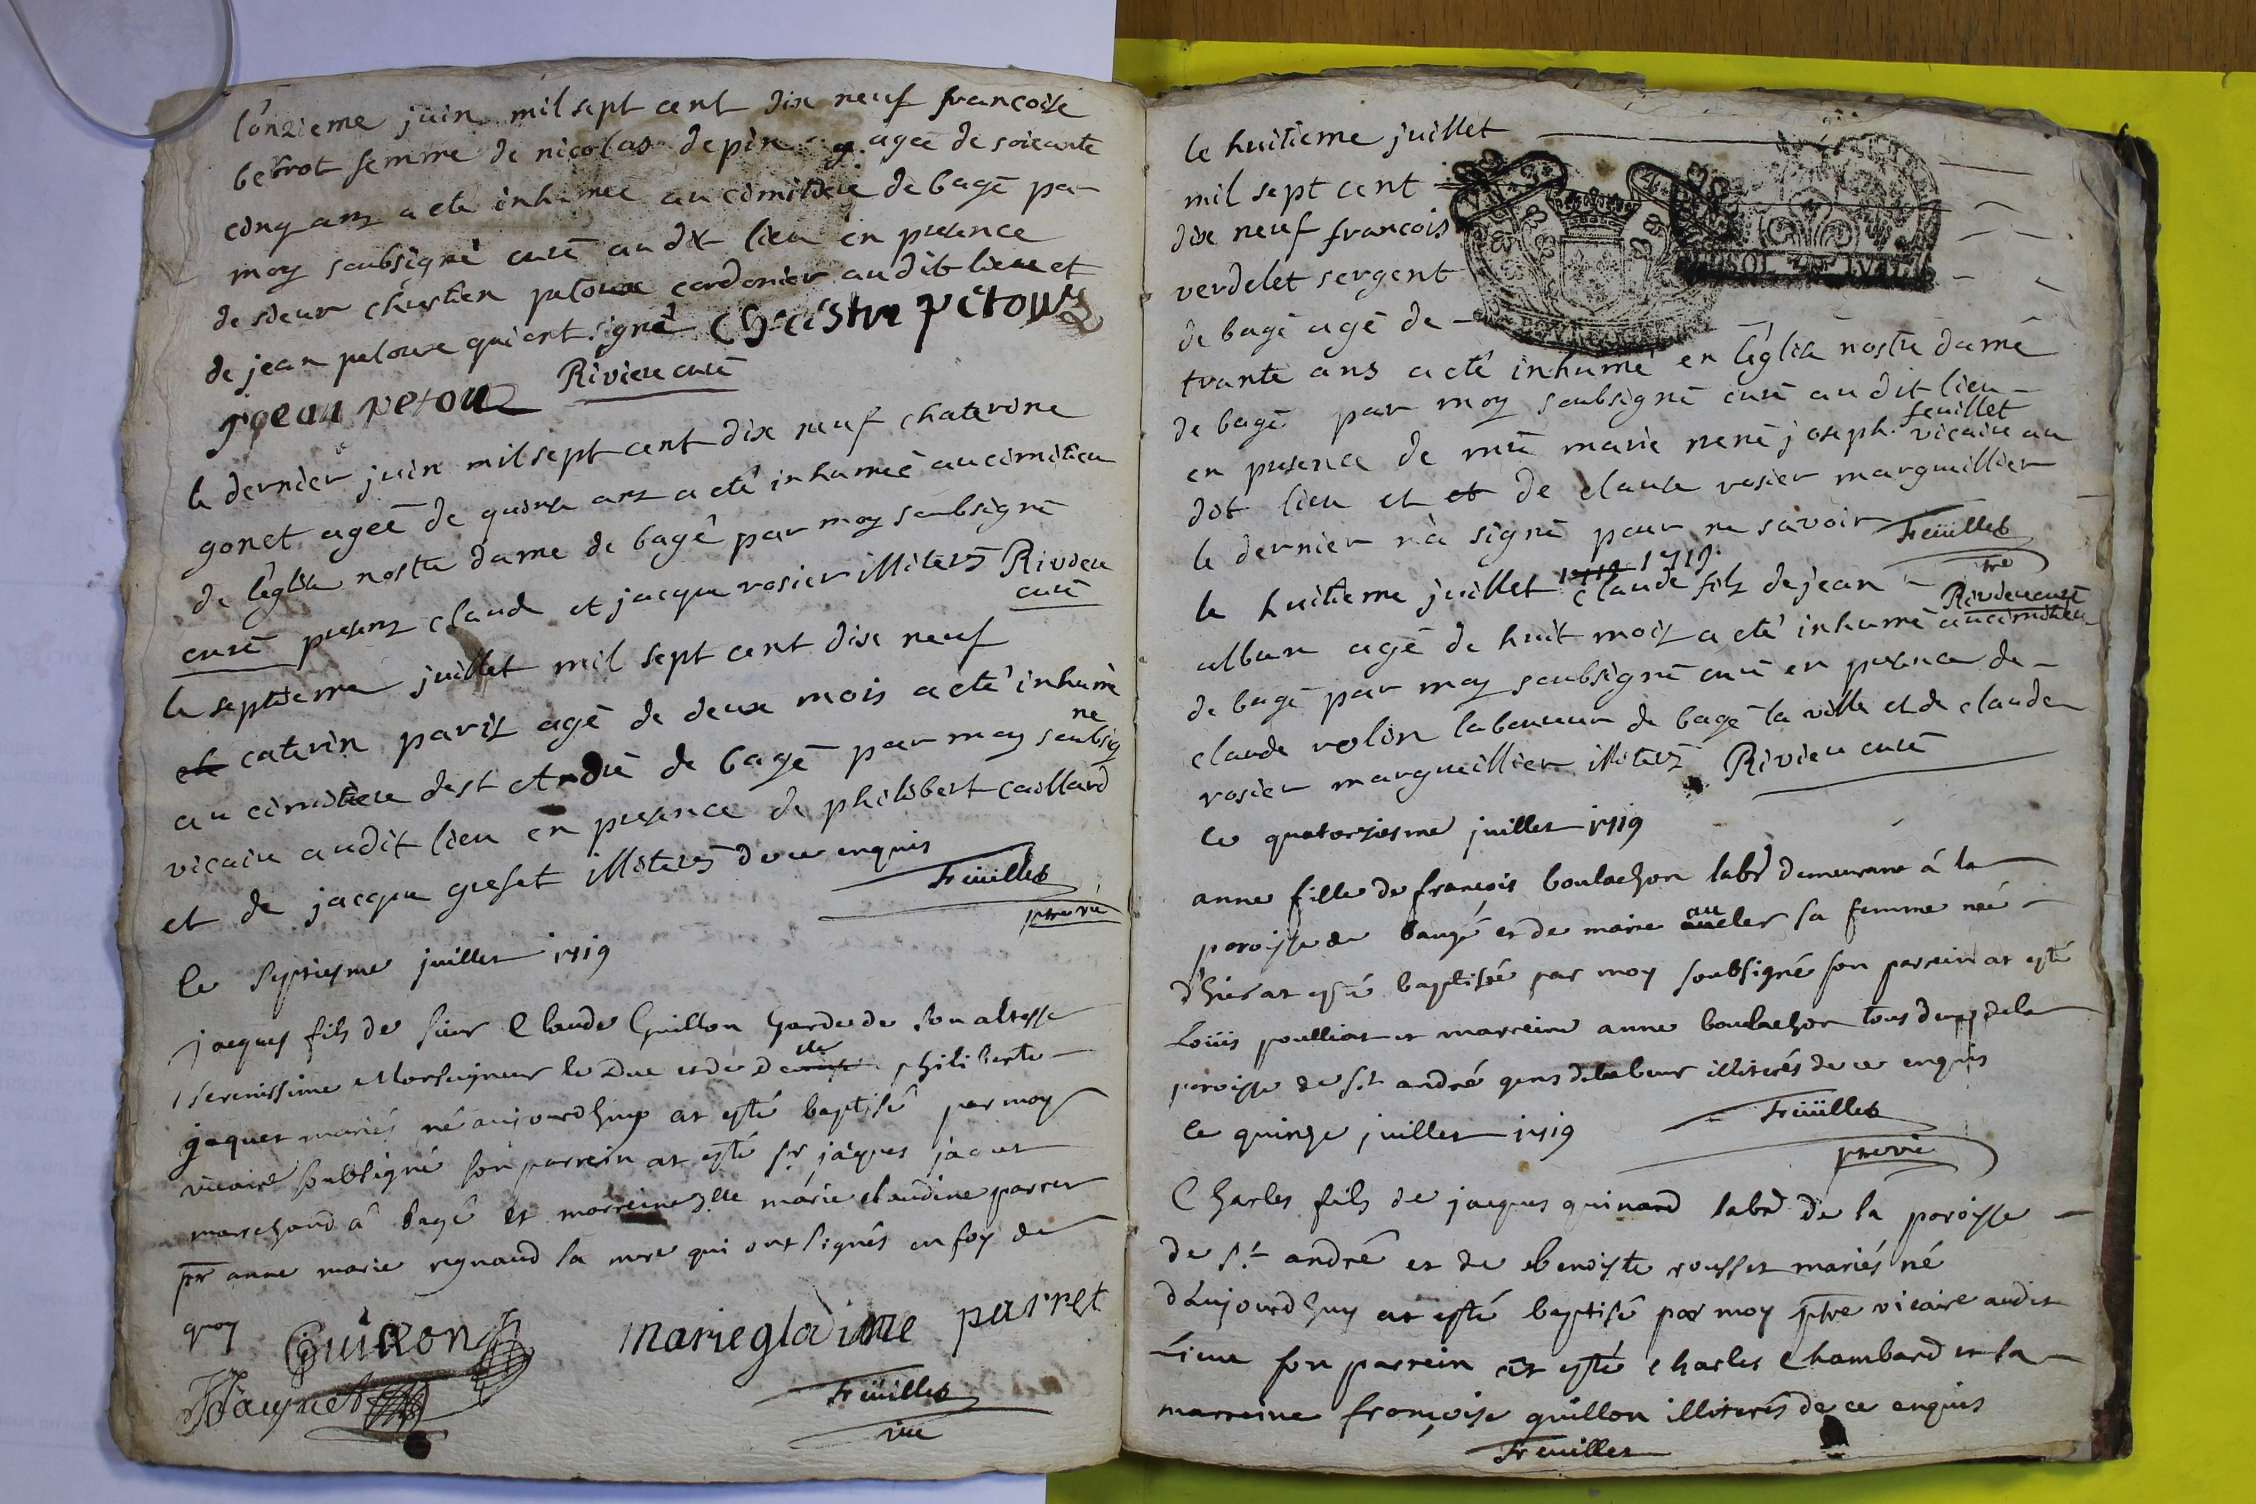 l'onzieme juin mil sept cent dix neuf francoise
bertrot femme de nicolas depin agee de soixante
cinq ans a eté inhumée au cimitiere de bagé par
moy soubsigné curé au dit lieu en presence
de sieur chrestien petoux cordonier au dit lieu et
de jean petoux qui ont signé Chrestin petoux
jean petoux Riviere curé
le dernier juin mil sept cent dix neuf chaterine
gonet ageé de quinze ans a eté inhumeé au cimitieu
de l'eglise nostre dame de bagé par moy soubsigné
curé presens claude et jacque rosier illiterés Riviere
curé
le septieme juillet mil sept cent dix neuf
caterin paris agé de deux mois a eté inhumé
au cimitiere de st André de bagé par moy soubsigne
vicaire au dit lieu en presence de philibert caillard
et de jacque greset illiterés de ce enquis
Freüillet
ptre vic
le septiesme juillet 1719
jacques fils de sieur Claude Guillon Garde de son altesse
serenissime Monseigneur le Duc et de Dlle philiberte
jaquet mariés né aujourdhuy at esté baptisé par moy
vicaire soubsigné son parrein at esté sr jaques jaquet
marchand à bagé et marreine Dlle marie claudine parret
pr anne marie regnaud sa mere qui ont signés en foy de
quoy
Guillon marie gladine parret
Jacquet
Freüillet
vic
le huitieme juillet
mil sept cent
dix neuf francois
verdelet sergent
de bagé agé de
trante ans a eté inhumé en l'eglise nostre dame
de bagé par moy soubsigné curé au dit lieu
en presence de mre marie rené joseph feuillet vicaire au
dit lieu et et de claude rosier marguillier
le dernier n'a signé pour ne savoir Freüillet
ptre
le huitieme juillet 1719 1719 claude fils de jean Riviere curé
alban agé de huit mois a eté inhumé au cimitieu
de bagé par moy soubsigné curé en presence de
claude volin laboureur de bagé la ville et de claude
rosier marguillier illiterés Riviere curé
le quatorziesme juillet 1719
anne fille de françois boulachon labr demeurant à la
paroisse de baugé et de marie aucler sa femme né
d'hier at esté baptisée par moy soubsigné son parrein at esté
Loüis poulliat et marreine anne boulachon tous deux de la
paroisse de st andré gens de labeur illiterés de ce enquis
Freüillet
ptre vic
le quinze juillet 1719
Charles fils de jacques quinard labr de la paroisse
de st andré et de benoiste rousset mariés né
d'aujourdhuy at esté baptisé par moy ptre vicaire audit
lieu son parrein at esté charles Chambard et la
marreine françoise guillon illiterés de ce enquis
Freuillet